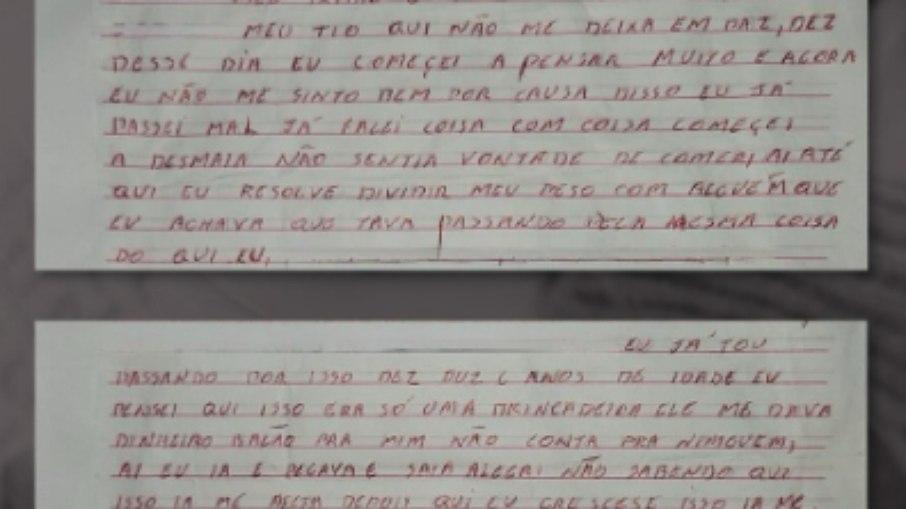 MEU TIO QUI NÃO ME DEIXA EM PAZ, DEZ
DESSE DIA EU COMEÇEI A PENSAR MUITO E AGORA
EU NÃO ME SINTO BEM POR CAUSA DISSO EU JÁ
PASSEI MAL JÁ FALEI COISA COM COISA COMEÇEI
A DESMAIA NÃO SENTIA VONTADE DE COMER, AI ATÉ
QUI EU RESOLVE DIVIDIR MEU PESO COM ALGUÉM QUE
EU ACHAVA QUE TAVA PASSANDO PELA MESMA COISA
DO QUI EU,
EU JÁ TOU
PASSANDO POR ISSO DEZ DUZ 6 ANOS DE IDADE EU
PENSEI QUI ISSO ERA SÓ UMA BRINCADEIRA ELE ME DAVA
DINHEIRO BALÃO PAA MIM NÃO CONTA PRA NIMGUEM,
AI EU IA E PEGAVA E SAIA ALEGRI NÃO SABENDO QUI
ISSO IA ME AFETA DEPOIS QUI EU CRESCESE ISSO IA ME